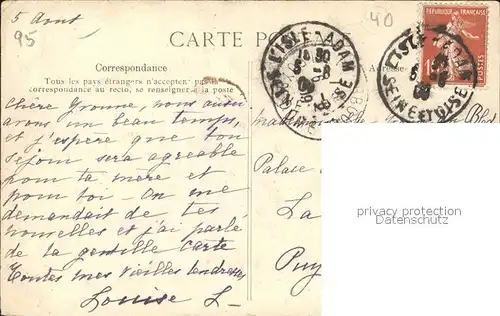 5 Aout
95
40
CARTE POS
Correspondance
Adresse
Tous les pays étrangers n'acceptent pas la
correspondance au recto, se renseigner à la poste
RÉPUBLIQUE FRANÇAISE
POSTES
L'ISLE-ADAM
SEINE-ET-OISE
L'ISLE-ADAM
SEINE-ET-OISE
Chère Yvonne, nous aussi
avons un beau temps,
et j'espère que ton
séjour sera agréable
pour ta mère et
pour toi - On me
demandait de tes
nouvelles et j'ai parlé
de ta gentille carte
Toutes mes vieilles tendresses
Louise L-
Palace
La
Puy
privacy protection
Datenschutz